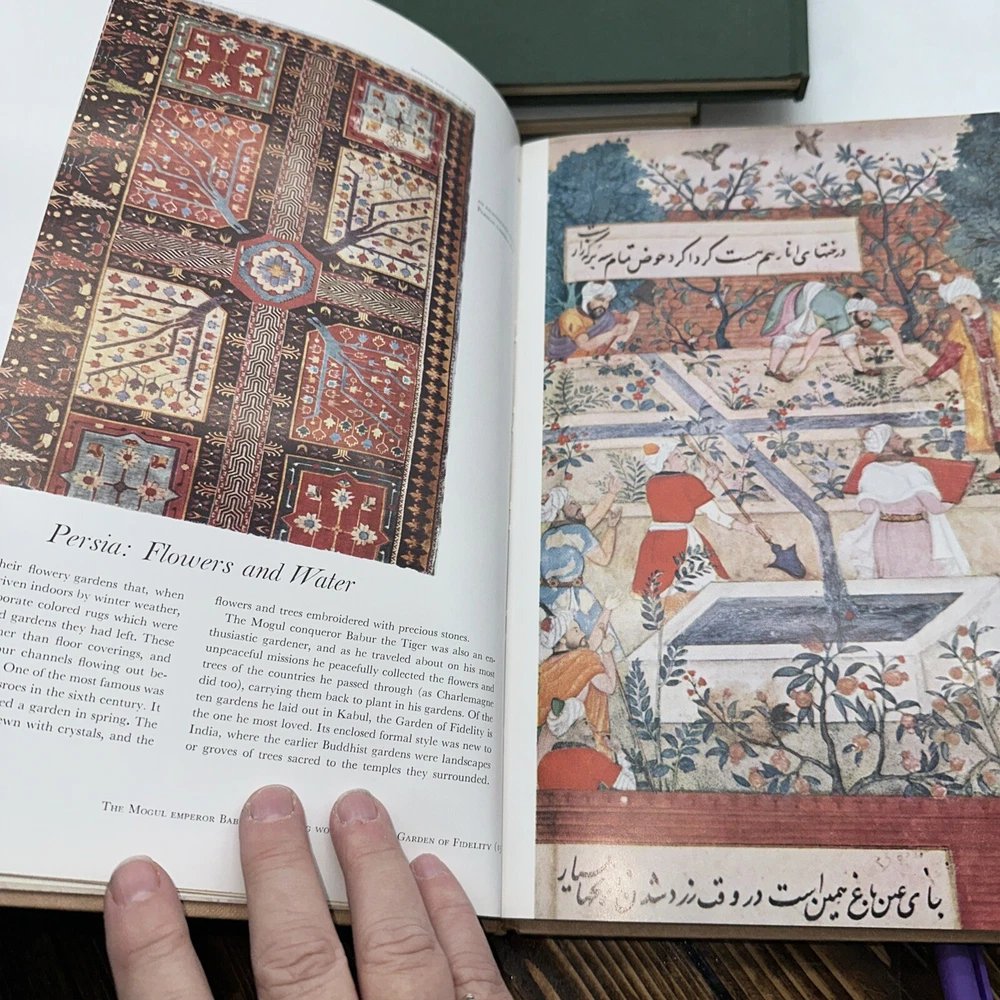 Persia: Flowers and Water
heir flowery gardens that, when
riven indoors by winter weather,
orate colored rugs which were
d gardens they had left. These
her than floor coverings, and
ur channels flowing out be-
One of the most famous was
sroes in the sixth century. It
ed a garden in spring. The
ewn with crystals, and the
flowers and trees embroidered with precious stones.
The Mogul conqueror Babur the Tiger was also an en-
thusiastic gardener, and as he traveled about on his most
unpeaceful missions he peacefully collected the flowers and
trees of the countries he passed through (as Charlemagne
did too), carrying them back to plant in his gardens. Of the
ten gardens he laid out in Kabul, the Garden of Fidelity is
the one he most loved. Its enclosed formal style was new to
India, where the earlier Buddhist gardens were landscapes
or groves of trees sacred to the temples they surrounded.
The Mogul emperor Bab
Garden of Fidelity
درختهای انار هم هست گرداگرد حوض تمام سه برگه زار
عین باغ همین است در وقت زرد شدن